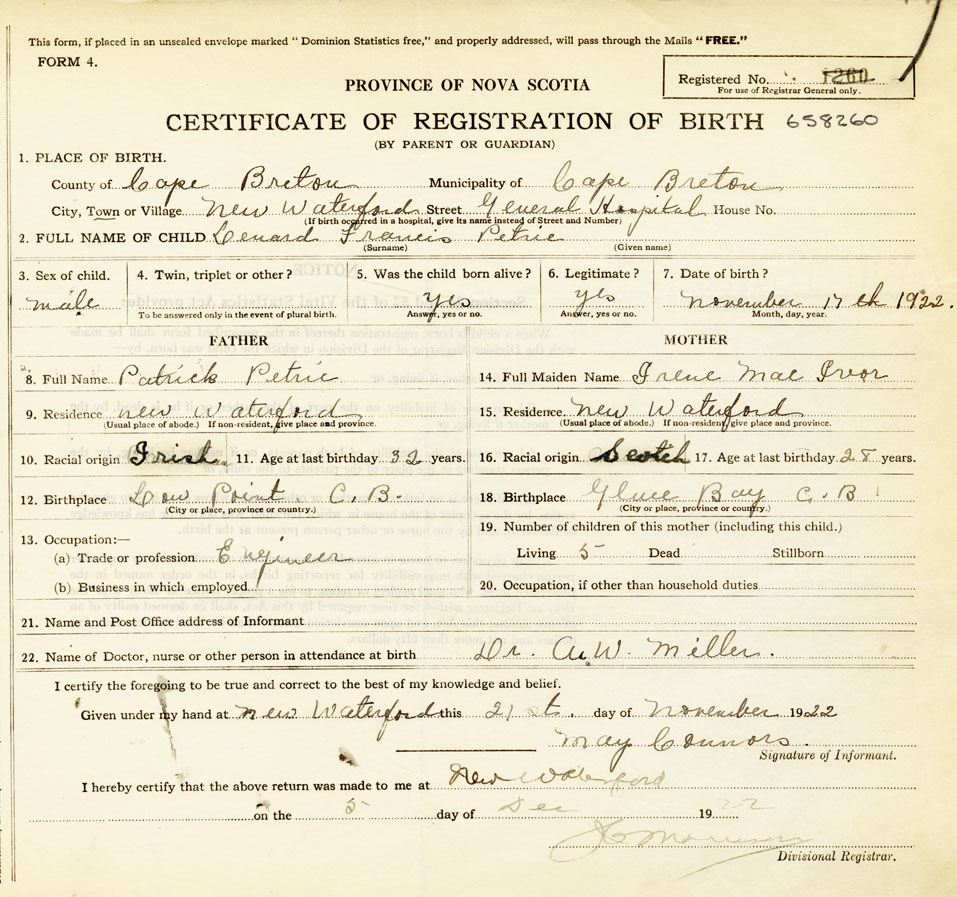 This form, if placed in an unsealed envelope marked " Dominion Statistics free," and properly addressed, will pass through the Mails " FREE."
FORM 4.
Registered No. 1260
For use of Registrar General only.
PROVINCE OF NOVA SCOTIA
CERTIFICATE OF REGISTRATION OF BIRTH 658260
(BY PARENT OR GUARDIAN)
1. PLACE OF BIRTH.
County of Cape Breton Municipality of Cape Breton
City, Town or Village New Waterford Street General Hospital House No.
(If birth occurred in a hospital, give its name instead of Street and Number)
2. FULL NAME OF CHILD Lenard Francis Petrie
(Surname) (Given name)
3. Sex of child. 4. Twin, triplet or other? 5. Was the child born alive? 6. Legitimate? 7. Date of birth?
male yes yes November 17th 1922.
To be answered only in the event of plural birth. Answer, yes or no. Answer, yes or no. Month, day, year.
FATHER MOTHER
8. Full Name Patrick Petrie 14. Full Maiden Name Irene Mac Ivor
9. Residence New Waterford 15. Residence. New Waterford
(Usual place of abode.) If non-resident, give place and province. (Usual place of abode.) If non-resident, give place and province.
10. Racial origin Irish 11. Age at last birthday 32 years. 16. Racial origin Scotch 17. Age at last birthday 28 years.
12. Birthplace Low Point. C.B. 18. Birthplace Glace Bay C.B
(City or place, province or country.) (City or place, province or country.)
13. Occupation:— 19. Number of children of this mother (including this child.)
(a) Trade or profession Engineer Living 5 Dead Stillborn
(b) Business in which employed 20. Occupation, if other than household duties
21. Name and Post Office address of Informant
22. Name of Doctor, nurse or other person in attendance at birth Dr. A.W. Miller.
I certify the foregoing to be true and correct to the best of my knowledge and belief.
Given under my hand at New Waterford this 21st. day of November 1922
May Connors.
Signature of Informant.
I hereby certify that the above return was made to me at New Waterford
on the 5 day of Dec 1922
Divisional Registrar.